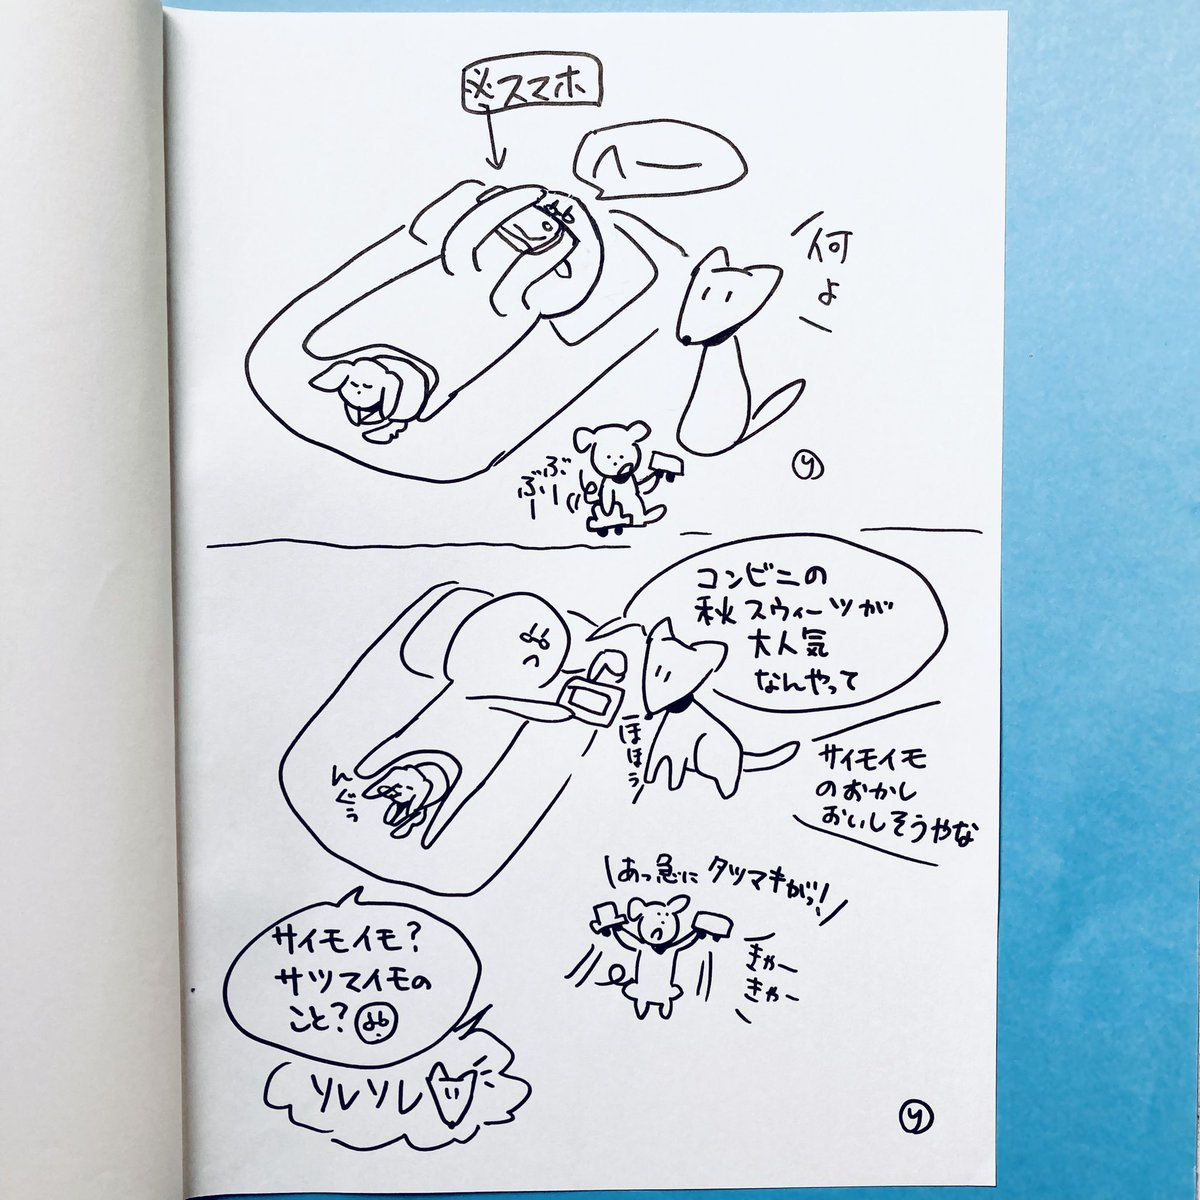 ※スマホ
へー
何よ
ぶぶーりー
コンビニの
秋スウィーツが
大人気
なんやって
ほほぅ
サイモイモ
のおかし
おいしそうやな
んぐぅ
あっ急にタツマキがっ!
きゃー
きゃー
サイモイモ?
サツマイモの
こと?
ソレソレ